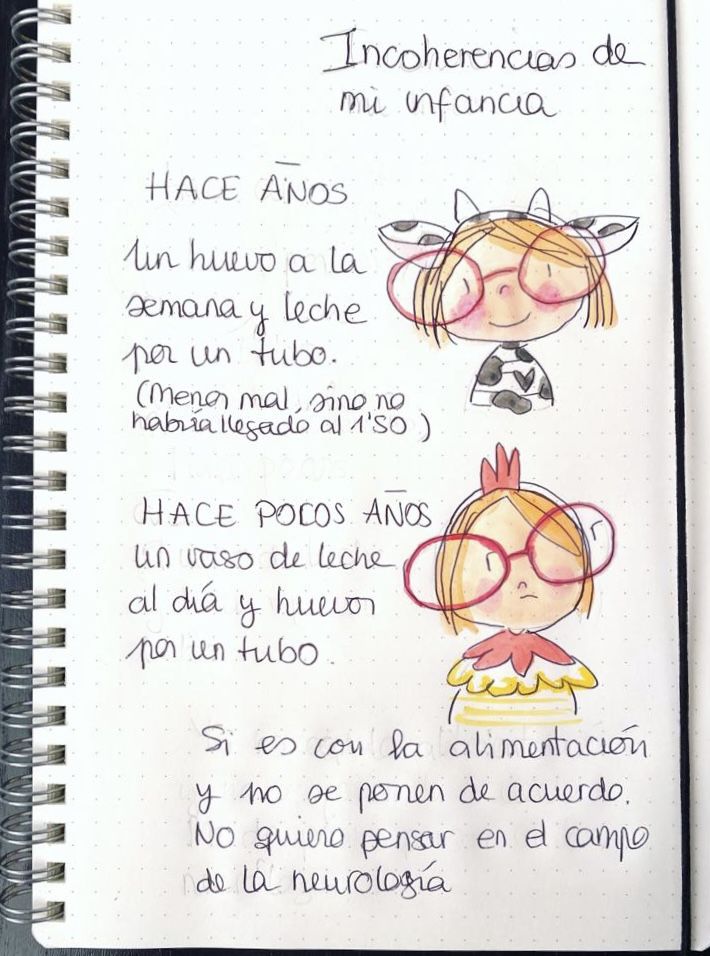 Incoherencias de
mi infancia
HACE AÑOS
Un huevo a la
semana y leche
por un tubo.
(Menos mal, sino no
habría llegado al 1'50)
HACE POCOS AÑOS
un vaso de leche
al día y huevos
por un tubo.
Si es con la alimentación
y no se ponen de acuerdo.
No quiero pensar en el campo
de la neurología